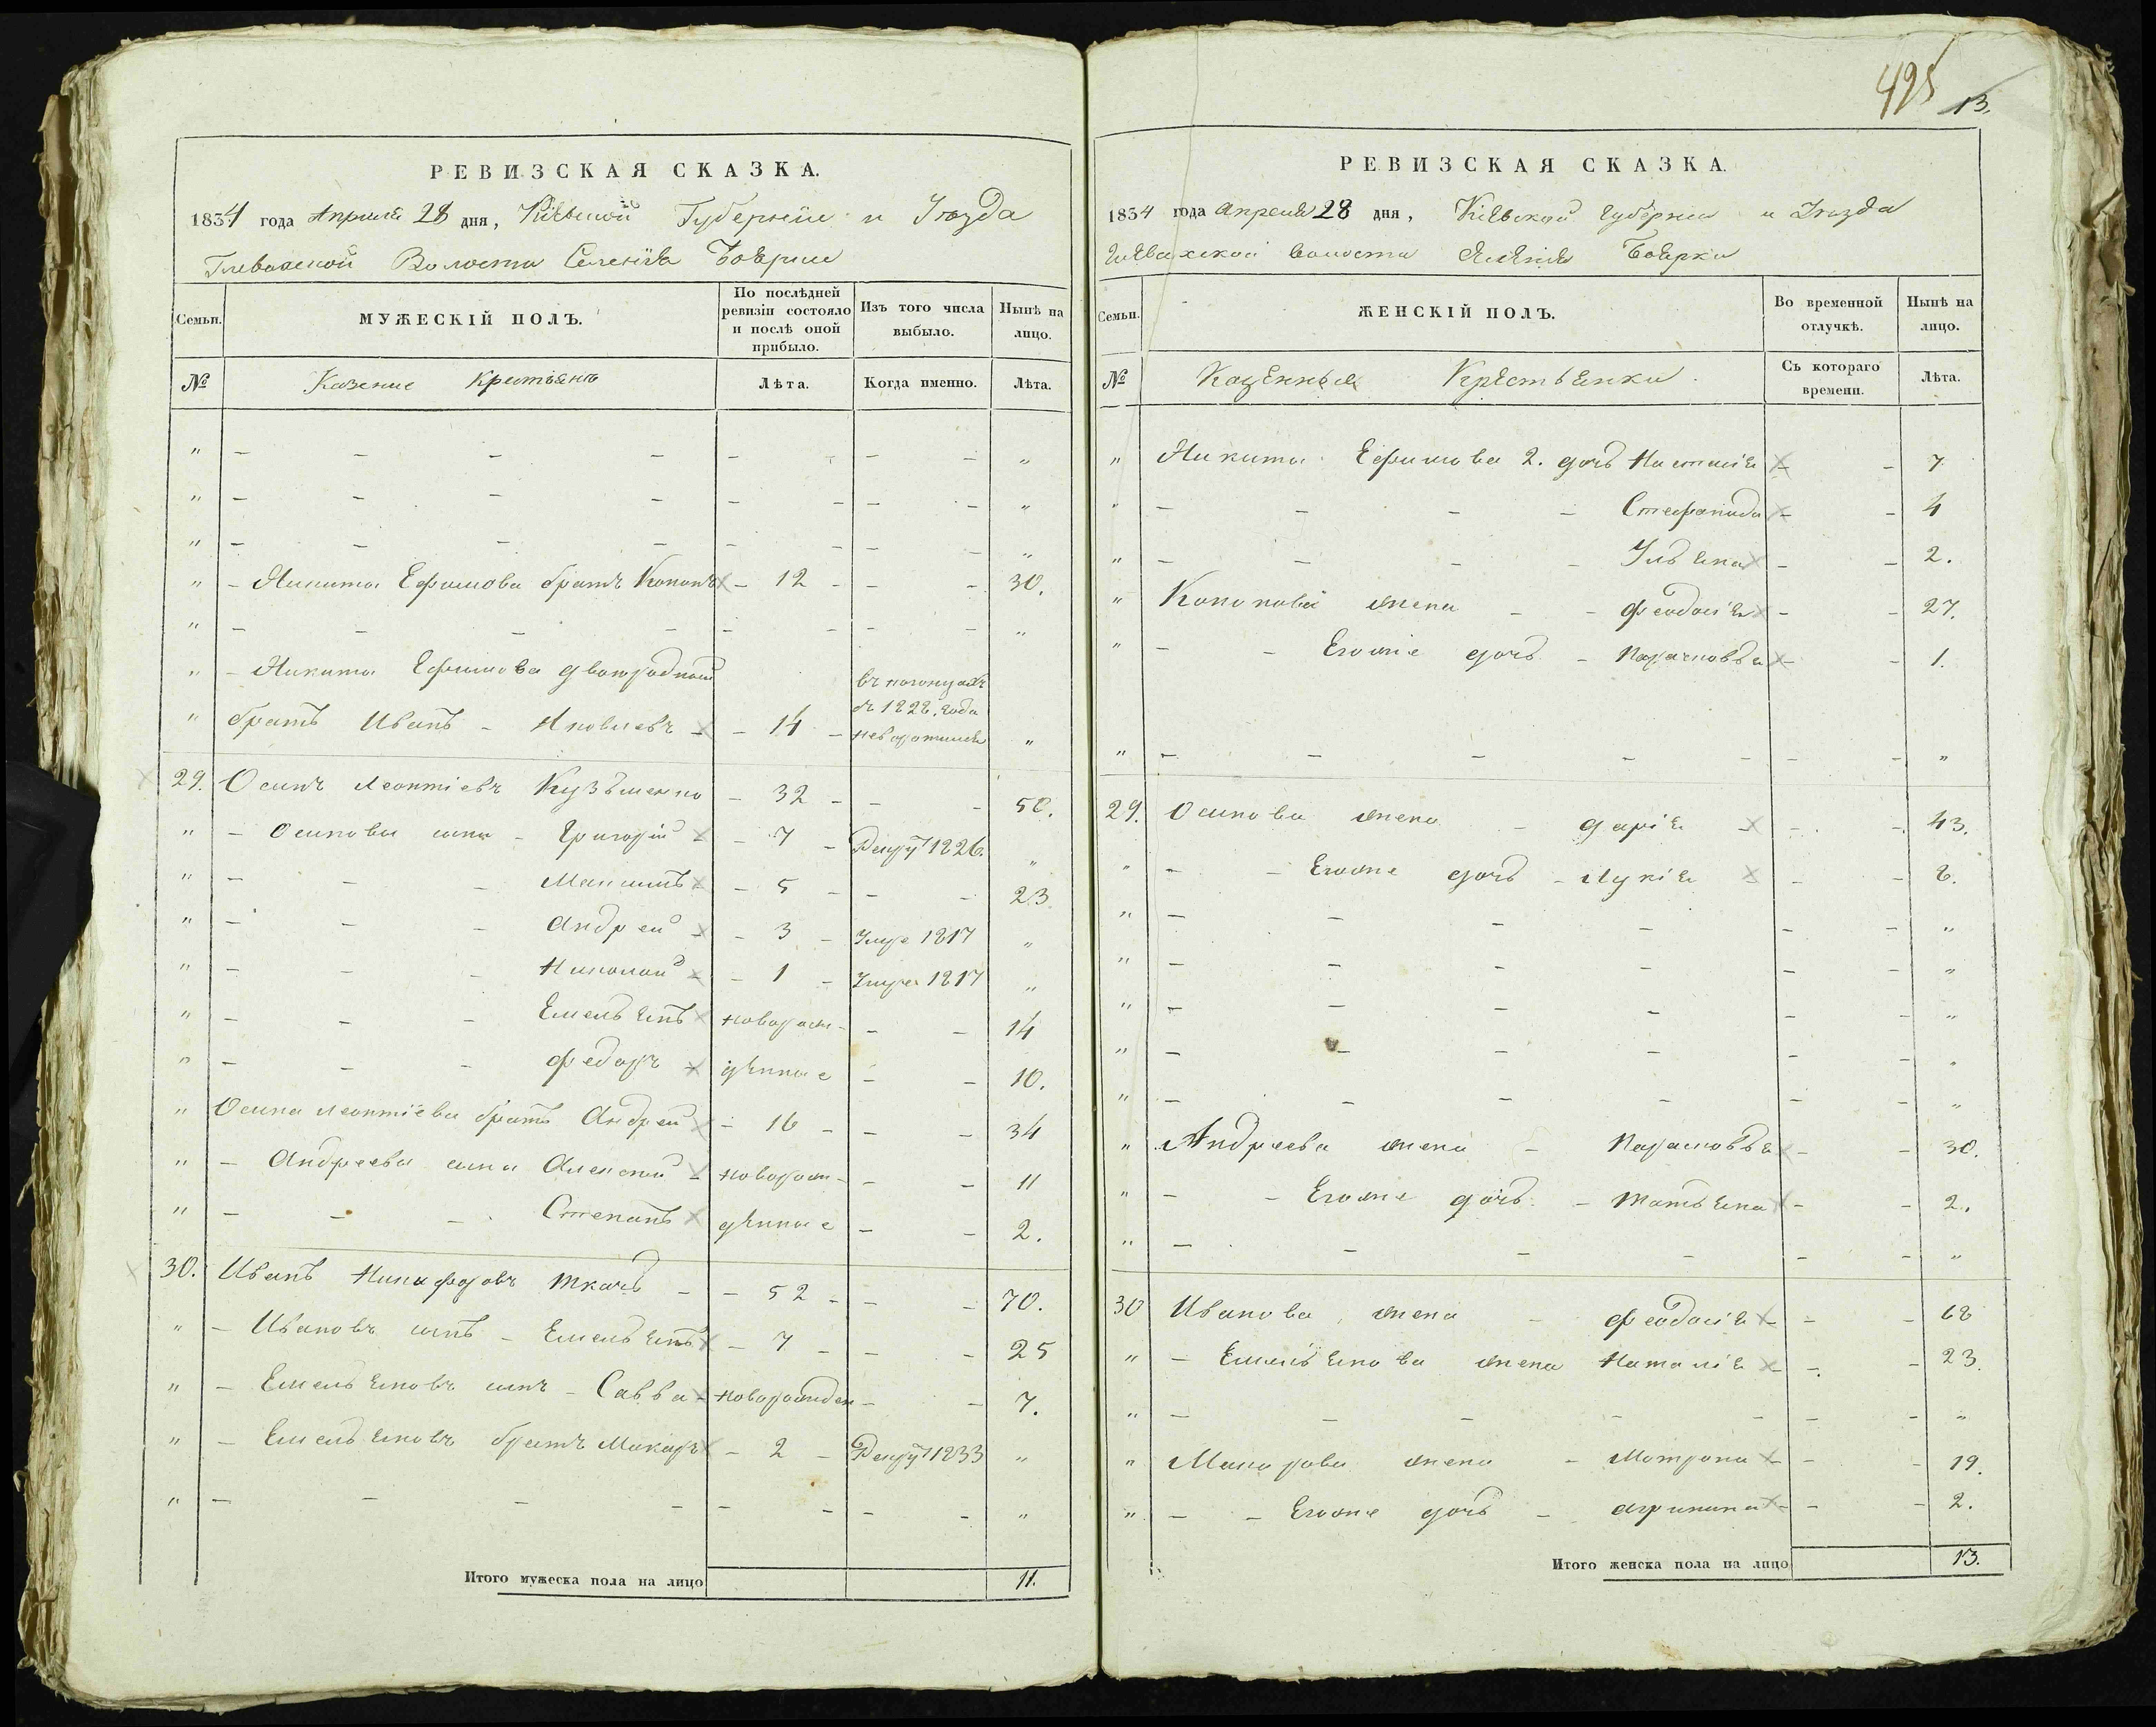 495
13.
РЕВИЗСКАЯ СКАЗКА.
1834 года Апреля 28 дня, Кіевской Губерніи и Уѣзда
Глевахской Волости Селенія Боярки
Семьи.
МУЖЕСКІЙ ПОЛЪ.
По послѣдней ревизіи состояло и послѣ оной прибыло.
Изъ того числа выбыло.
Нынѣ на лицо.
№ Казеные Крестьянъ Лѣта. Когда именно. Лѣта.
" - - - - - - - "
" - - - - - - - "
" - - - - - - - "
" - Никита Ефимова братъ Кононъ - 12 - - - 30.
" - - - - - - - "
" - Никита Ефимова двоюродный
" братъ Иванъ - Яковлевъ - 14 - въ 1828. года "
29. Осипъ Леонтіевъ Кузьменко - 32 - - - 50.
" - Осиповы сыны - Григорій - 7 - Рекру 1826. "
" - - - Максимъ - 5 - - - 23.
" - - - Андрей - 3 - Умре 1817 "
" - - - Николай - 1 - Умре 1817 "
" - - - Емельянъ новорож- - - 14
" - - - Федоръ денные - - 10.
" Осипа Леонтіева братъ Андрей - 16 - - - 34
" - Андреевы сыны Алексей новорож- - - 11
" - - - Степанъ денные - - 2.
30. Иванъ Никифоровъ Ткачь - - 52 - - - 70.
" - Ивановъ сынъ - Емельянъ - 7 - - - 25
" - Емельяновъ сынъ - Савва - новорожден - - 7.
" - Емельяновъ братъ Макаръ - 2 - Рекру 1833 "
" - - - - - - - - "
Итого мужеска пола на лицо 11.
РЕВИЗСКАЯ СКАЗКА.
1834 года Апреля 28 дня, Кіевской Губерніи и Уѣзда
Глевахской Волости Селенія Боярки
Семьи.
ЖЕНСКІЙ ПОЛЪ.
Во временной отлучкѣ.
Нынѣ на лицо.
№ Казенныя Крестьянки. Съ котораго времени. Лѣта.
" Никиты Ефимова 2. дочь Настасія - - 7
" - - - - Стефанида - - 4
" - - - - Ульяна - - 2.
" Кононова жена - - Феодосія - - 27.
" - - Егоже дочь - Парасковья - - 1.
" - - - - - - - "
29. Осипова жена - Дарія - - - 43.
" - - Егоже дочь - Лукія - - - 8.
" - - - - - - "
" - - - - - - "
" - - - - - - "
" - - - - - - "
" - - - - - - "
" Андреева жена - Парасковья - - 30.
" - - Егоже дочь - Татьяна - - 2.
" - - - - - - "
30 Иванова жена - Феодосія - - - 68
" - Емельянова жена Наталія - - - 23.
" - - - - - - - "
" Макарова жена - Мотрона - - - 19.
" - - Егоже дочь - Агрипина - - - 2.
Итого женска пола на лицо 13.